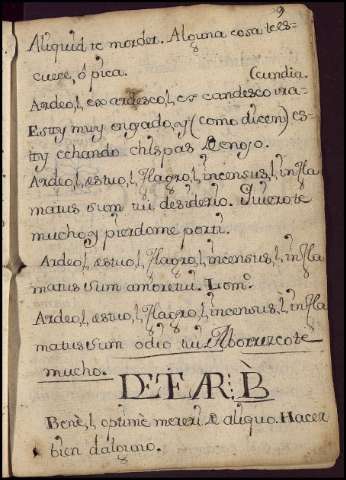 9
Aliquid te morder. Alguna cosa te es-
cuece, ó pica. (cundia.
Ardeo, l, ex ardesco, l, ex candesco ira-
Estoy muy enojado, y (como dicen) es-
toy echando chispas de enojo.
Ardeo, l, æstuo, l, flagro, l, incensus, l, infla
matus sum tui desiderio. Quierote
mucho y pierdome por ti.
Ardeo, l, æstuo, l, flagro, l, incensus, l, infla
matus sum amore tui. L om.º
Ardeo, l, æstuo, l, flagro, l, incensus, l, infla
matus sum odio tui. Aborrezcote
mucho.
DE TAR: B
Benè, l, optimè mereri de aliquo. Hacer
bien dalguno.